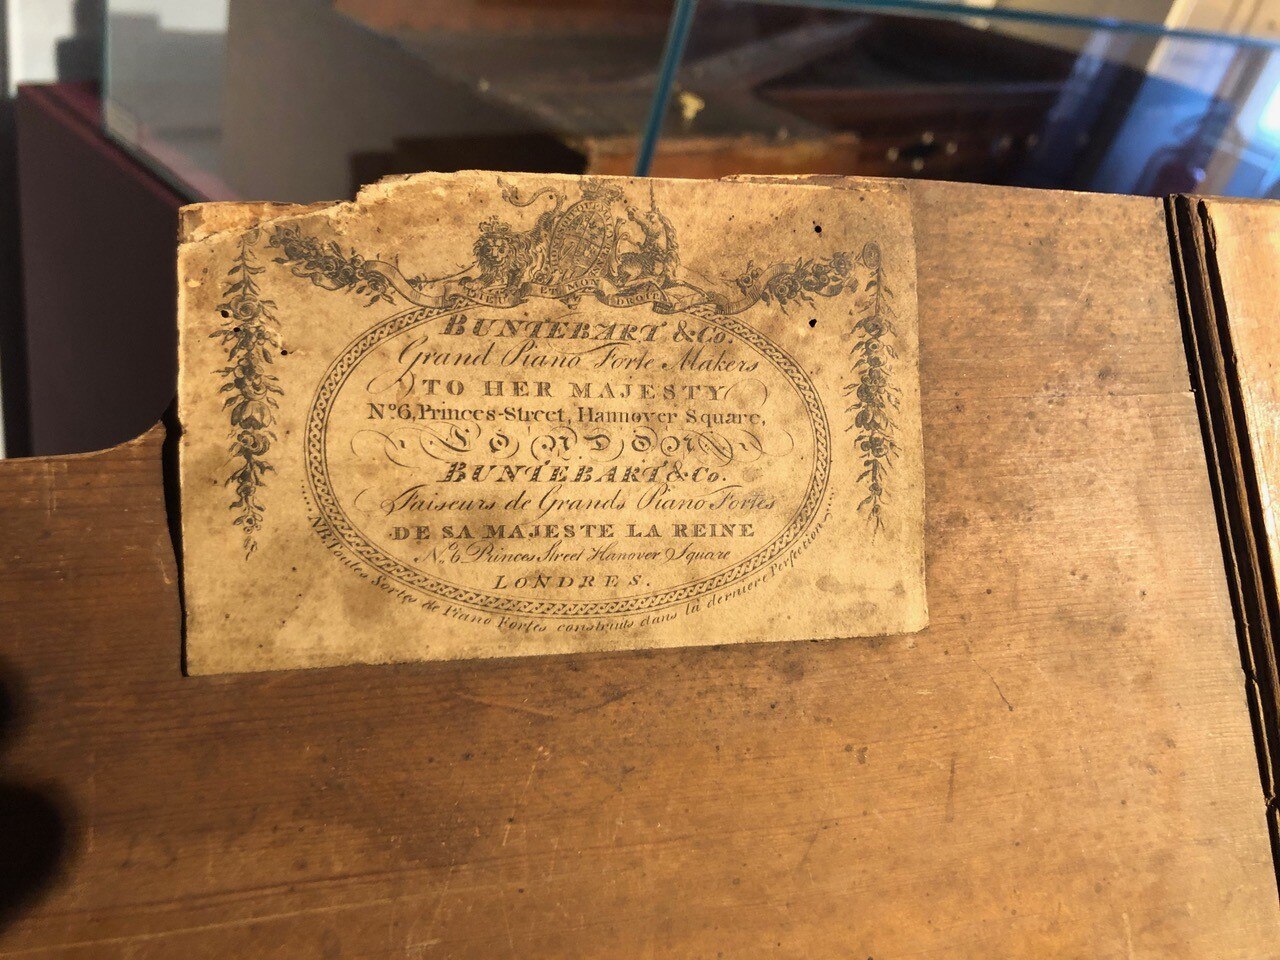 DIEU ET MON DROIT
BUNTEBART & Co.
Grand Piano Forte Makers
TO HER MAJESTY
No 6, Princes-Street, Hannover Square,
LONDON
BUNTEBART & Co.
Faiseurs de Grands Piano Fortes
DE SA MAJESTE LA REINE
No. 6 Princes Street Hanover Square
LONDRES.
NB. Toutes Sortes de Piano Fortes construits dans la derniere Perfection